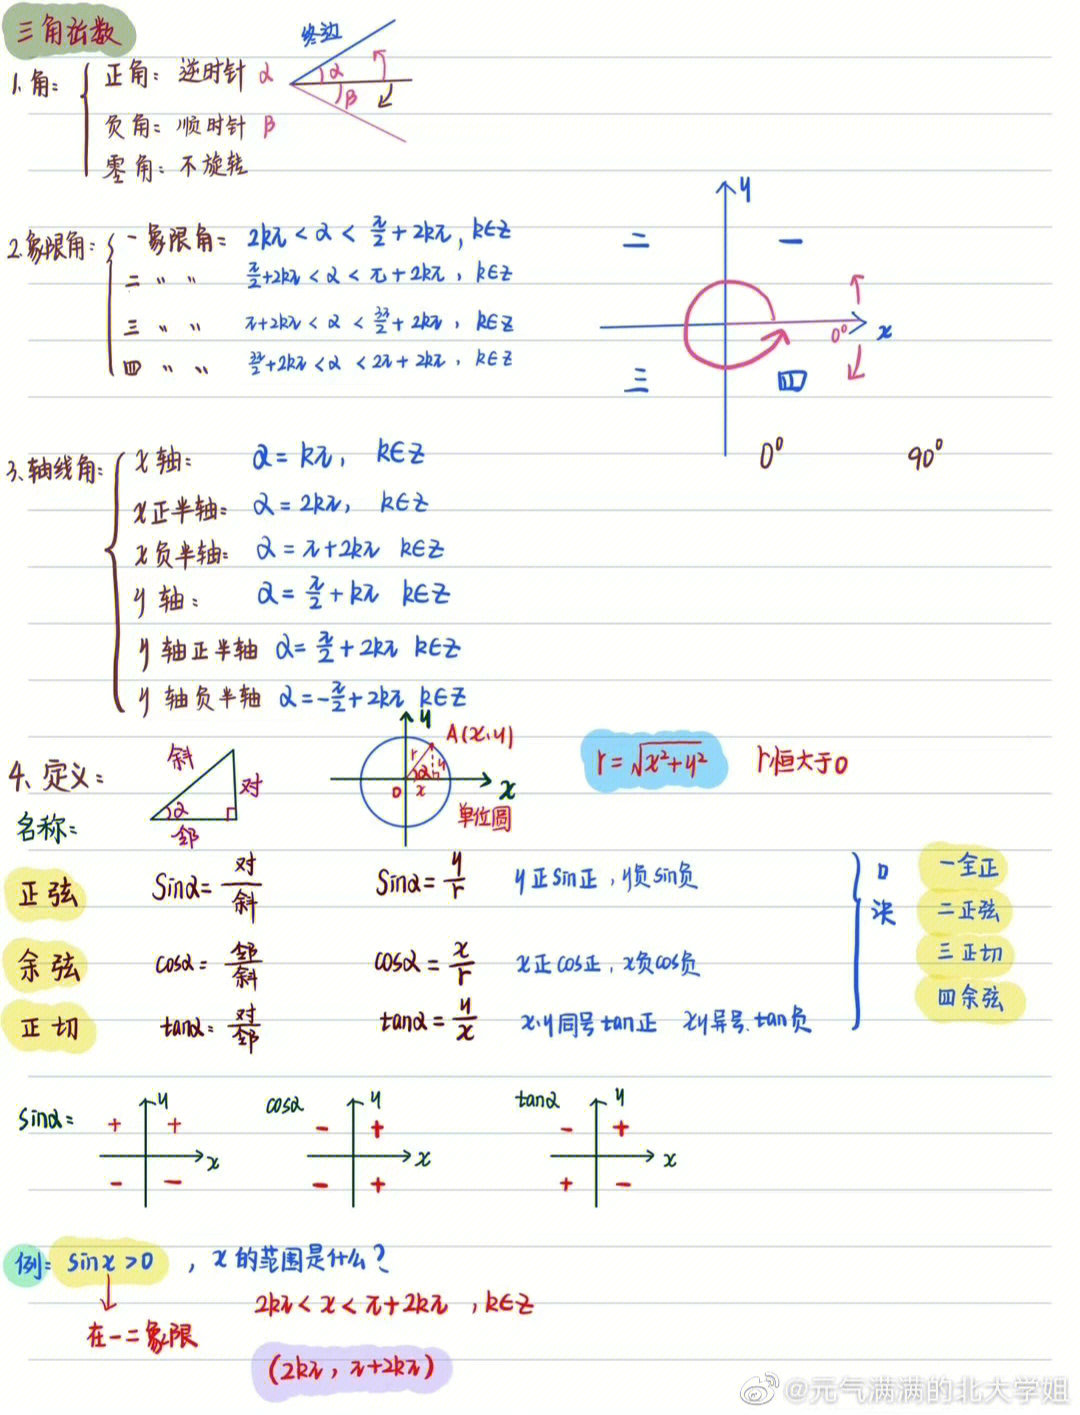 三角函数
1. 角:
正角: 逆时针 α
负角: 顺时针 β
零角: 不旋转
终边
α
β
2. 象限角:
一象限角: 2kπ < α < π/2 + 2kπ, k∈Z
二 〃 〃 π/2+2kπ < α < π + 2kπ, k∈Z
三 〃 〃 π+2kπ < α < 3π/2 + 2kπ, k∈Z
四 〃 〃 3π/2+2kπ < α < 2π + 2kπ, k∈Z
y
二 一
0° x
三 四
0° 90°
3. 轴线角:
x轴: α = kπ, k∈Z
x正半轴: α = 2kπ, k∈Z
x负半轴: α = π+2kπ k∈Z
y轴: α = π/2 + kπ k∈Z
y轴正半轴 α = π/2 + 2kπ k∈Z
y轴负半轴 α = -π/2 + 2kπ k∈Z
4、定义:
名称:
斜
对
α
邻
y
A(x,y)
r
α
y
0
x
x
单位圆
r = √x²+y² r恒大于0
正弦 Sinα = 对/斜 Sinα = y/r y正sin正, y负sin负
余弦 cosα = 邻/斜 cosα = x/r x正cos正, x负cos负
正切 tanα = 对/邻 tanα = y/x x,y同号tan正 xy异号,tan负
口决
一全正
二正弦
三正切
四余弦
sinα = y
+ +
x
- -
cosα y
- +
x
- +
tanα y
- +
x
+ -
例: sinx > 0, x的范围是什么?
在一二象限
2kπ < x < π+2kπ, k∈Z
(2kπ, π+2kπ)
@元气满满的北大学姐